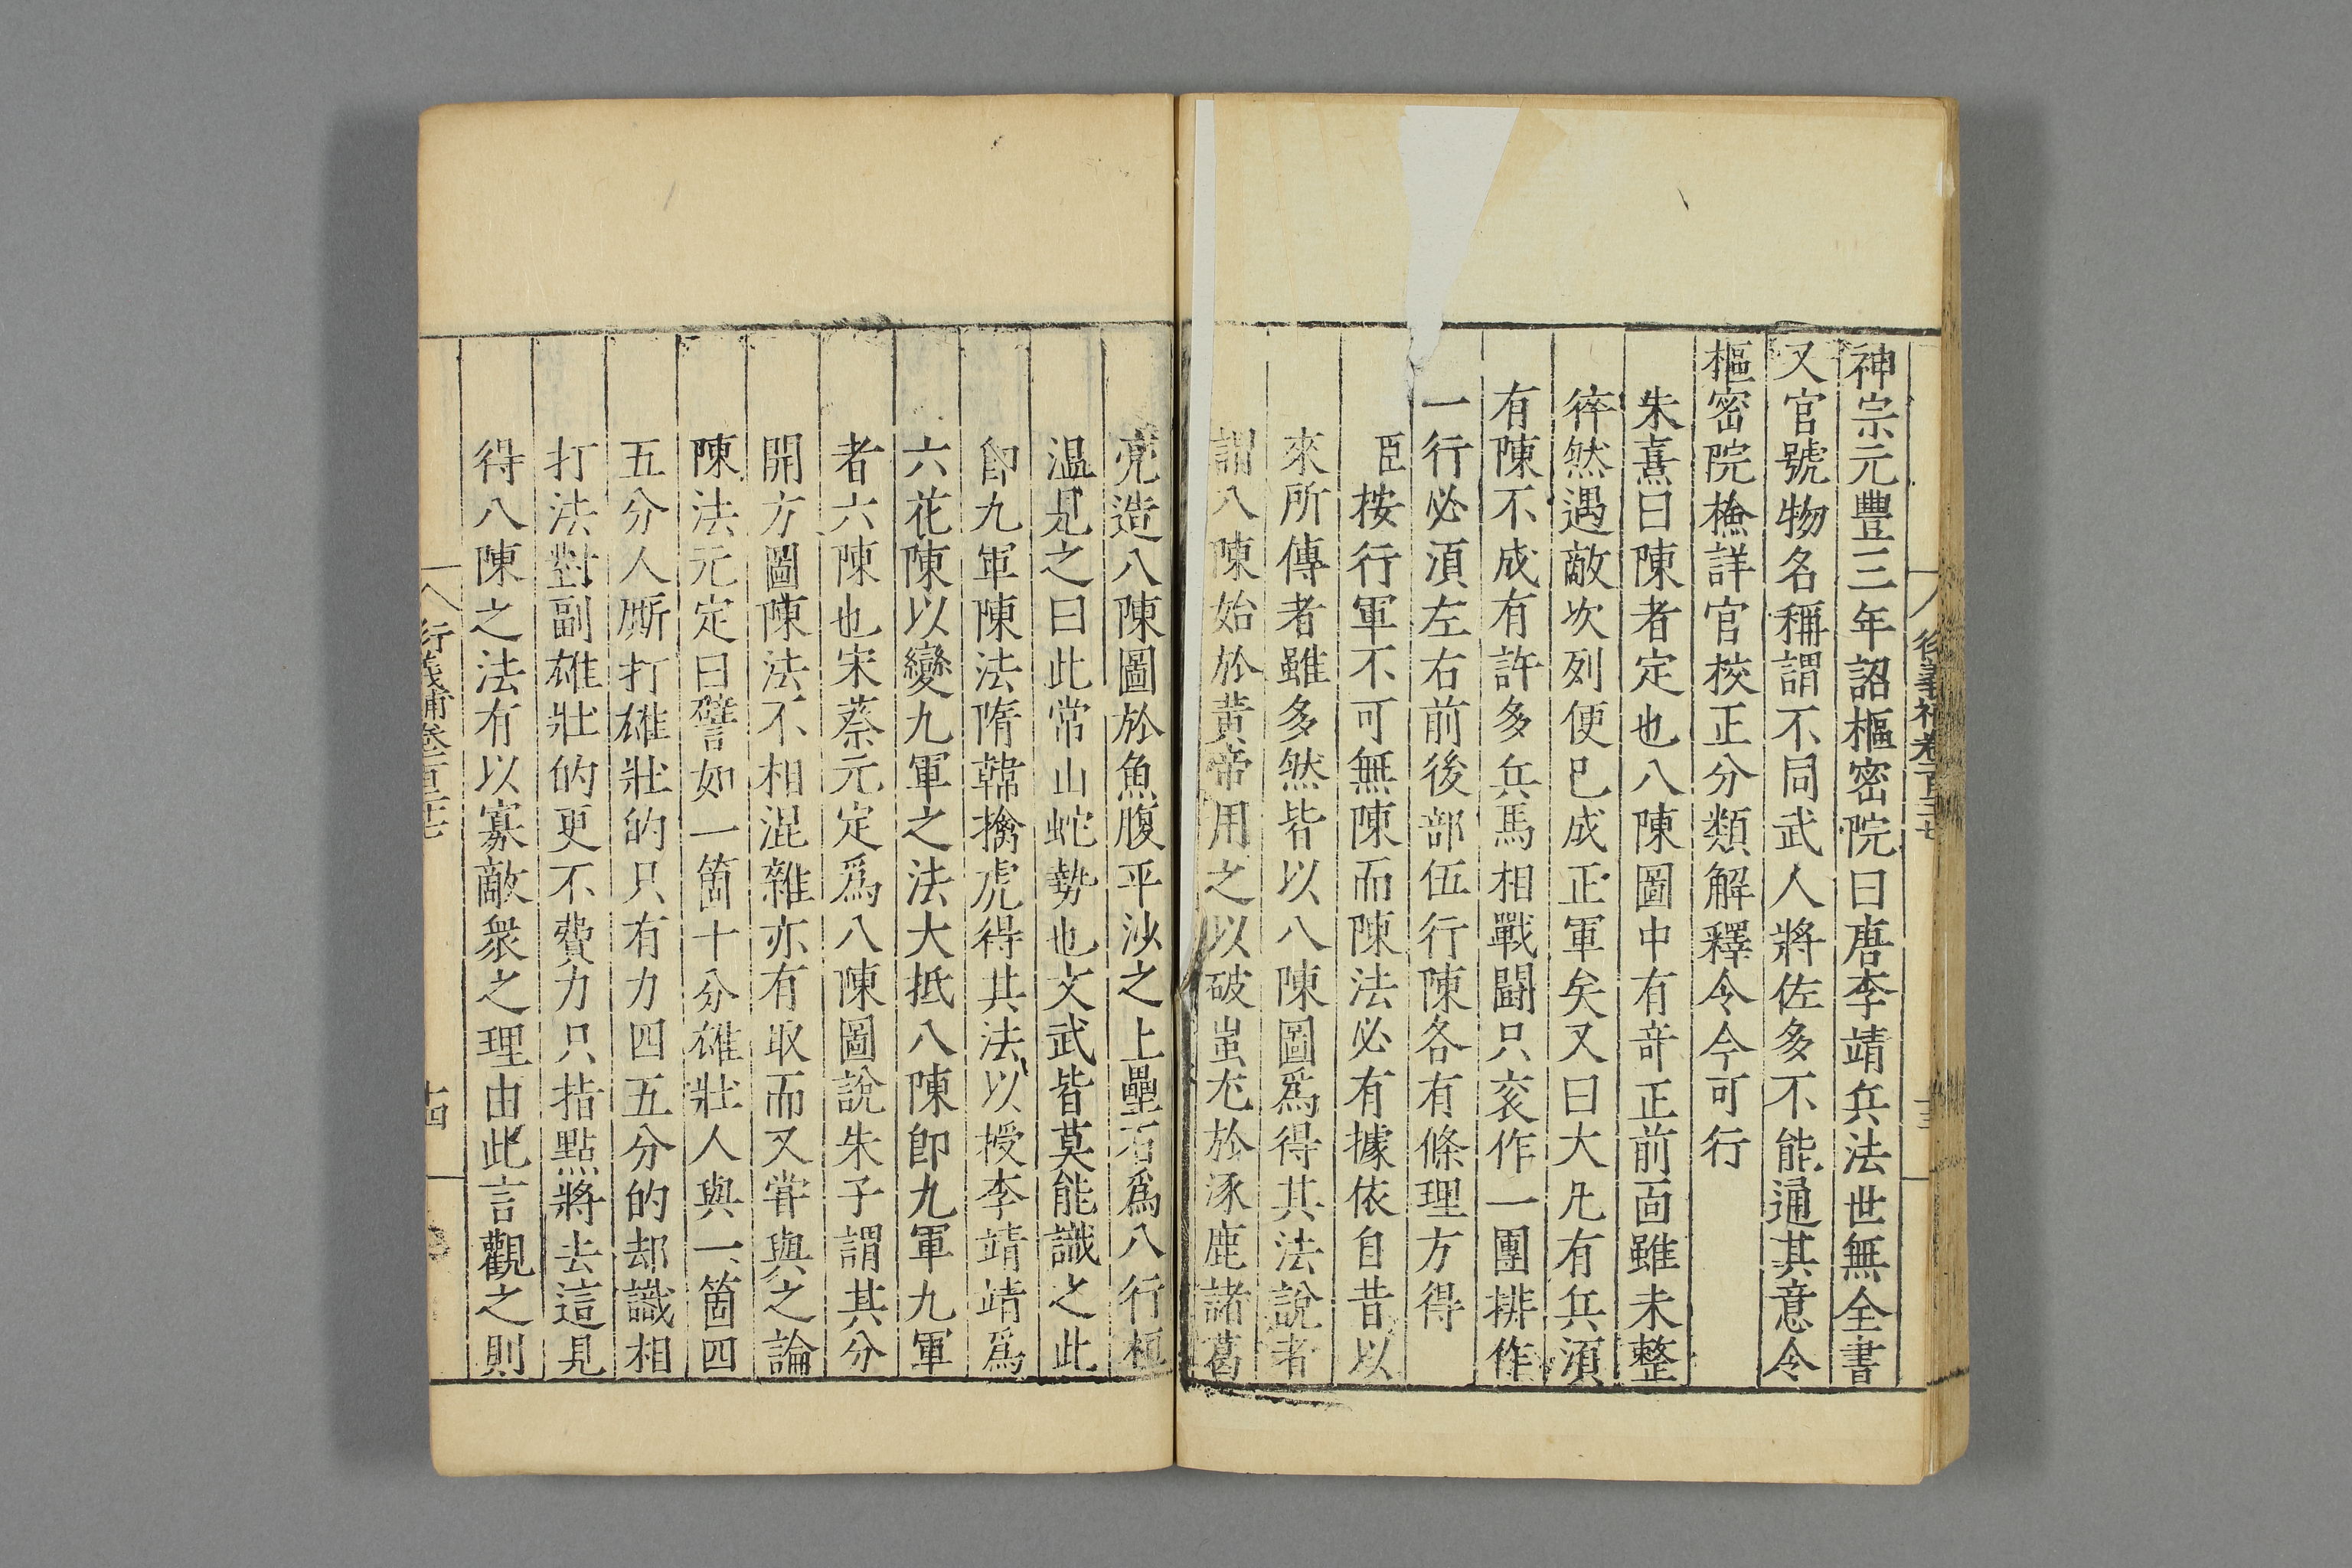 神宗元豐三年詔樞密院曰唐李靖兵法世無全書
又官號物名稱謂不同武人將佐多不能通其意令
樞密院檢詳官校正分類解釋令今可行
朱熹曰陳者定也八陳圖中有竒正前面雖未整
猝然遇敵次列便已成正軍矣又曰大凡有兵須
有陳不成有許多兵馬相戰鬬只衮作一團排作
一行必須左右前後部伍行陳各有條理方得
臣按行軍不可無陳而陳法必有據依自昔以
來所傳者雖多然皆以八陳圖爲得其法說者
謂八陳始於黃帝用之以破蚩尤於涿鹿諸葛
亮造八陳圖於魚腹平沙之上壘石爲八行桓
温見之曰此常山蛇勢也文武皆莫能識之此
卽九軍陳法隋韓擒虎得其法以授李靖靖爲
六花陳以變九軍之法大抵八陳卽九軍九軍
者六陳也宋蔡元定爲八陳圖說朱子謂其分
開方圖陳法不相混雜亦有取而又甞與之論
陳法元定曰譬如一箇十分雄壯人與一箇四
五分人厮打雄壯的只有力四五分的却識相
打法對副雄壯的更不費力只指點將去這見
得八陳之法有以寡敵衆之理由此言觀之則
衍義補卷一百三十七
十四